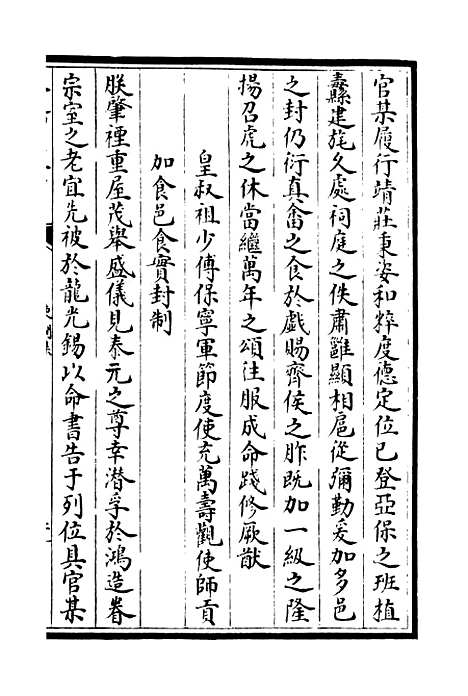 官某履行靖莊秉姿和粹度德定位已登亞保之班植
纛建旄久處祠庭之佚肅雝顯相扈從彌勤爰加多邑
之封仍衍真畬之食於戲賜齊侯之胙既加一級之隆
揚召虎之休當繼萬年之頌往服成命踐修厥猷
皇叔祖少傅保寧軍節度使充萬壽觀使師貢
加食邑食實封制
朕肇禋重屋茂舉盛儀見泰元之尊幸潛孚於鴻造眷
宗室之老宜先被於龍光錫以命書告于列位具官某